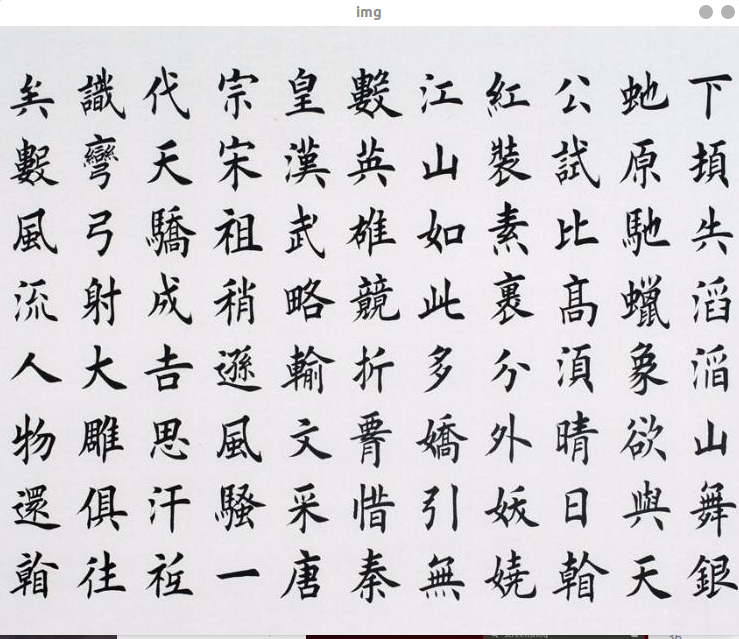 img
下頓失滔滔山舞銀
虵原馳蠟象欲與天
公試比髙須晴日看
紅裝素裹分外妖嬈
江山如此多嬌引無
數英雄競折腰惜秦
皇漢武略輸文采唐
宗宋祖稍遜風騷一
代天驕成吉思汗祗
識彎弓射大雕俱往
矣數風流人物還看